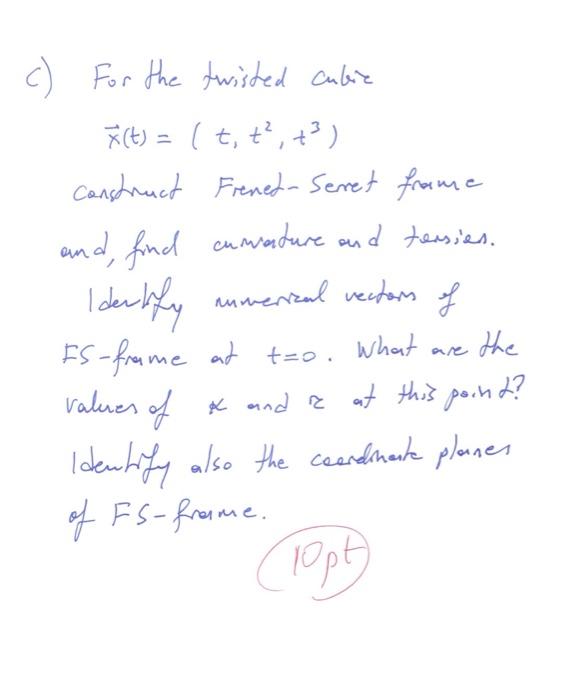 c) For the twisted cubic
x⃗(t) = ( t, t², t³ )
construct Frenet-Serret frame
and, find curvature and torsion.
Identify numerical vectors of
FS-frame at t=0. What are the
values of κ and τ at this point?
Identify also the coordinate planes
of FS-frame.
10pt